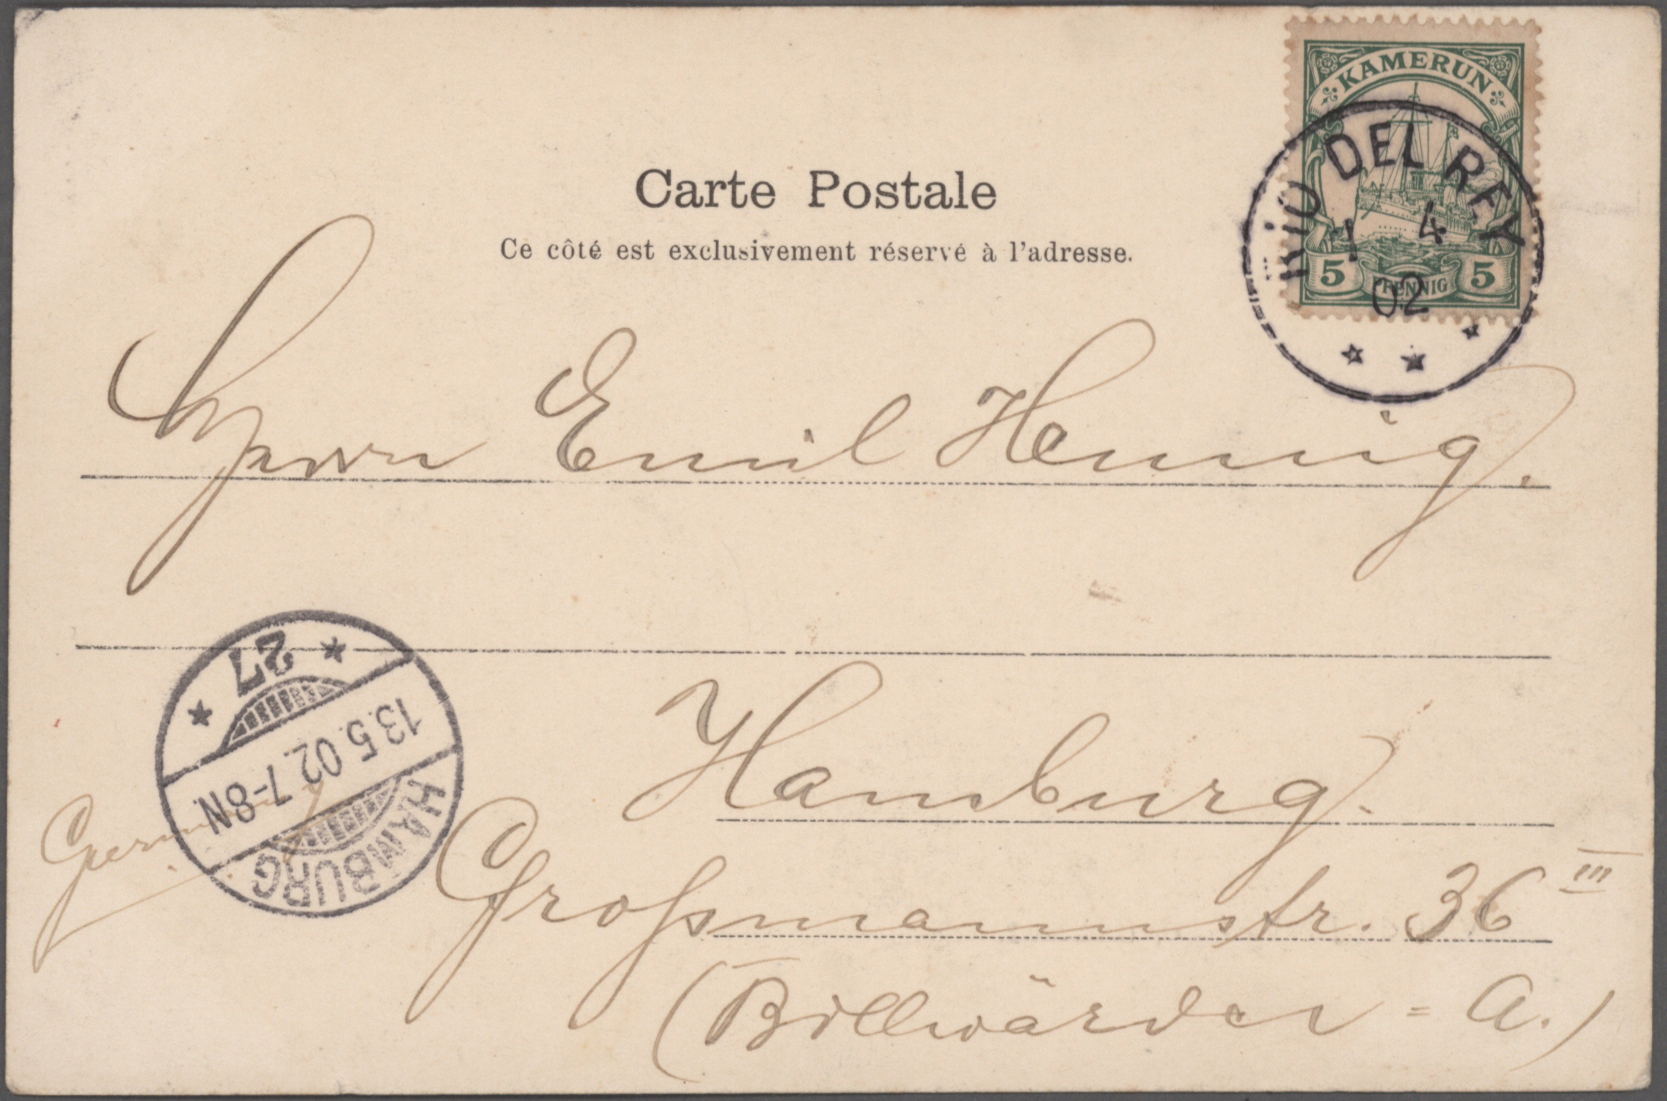 KAMERUN
5 PFENNIG 5
RIO DEL REY
1 4
02
Carte Postale
Ce côté est exclusivement réservé à l'adresse.
Herrn Emil Hennig.
27
13.5.02.7-8N.
HAMBURG
Hamburg.
Germany
Großmannstr. 36 III
(Billwärder = A.)